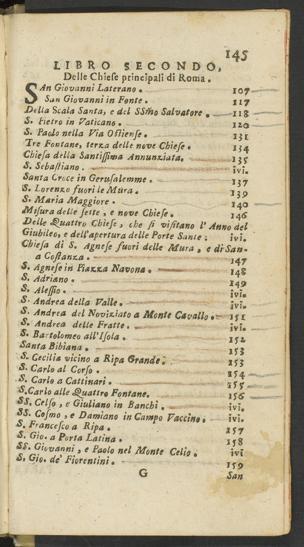 145
LIBRO SECONDO,
Delle Chiese principali di Roma.
San Giovanni Laterano. 107
San Giovanni in Fonte. 117
Della Scala Santa, e del SSmo Salvatore. 118
S. Pietro in Vaticano. 120
S. Paolo nella Via Ostiense. 131
Tre Fontane, terza delle nove Chiese. 134
Chiesa della Santissima Annunziata. 135
S. Sebastiano. ivi.
Santa Croce in Gerusalemme. 137
S. Lorenzo fuori le Mura. 139
S. Maria Maggiore. 140
Misura delle sette, e nove Chiese. 146
Delle Quattro Chiese, che si visitano l'Anno del
Giubileo, e dell'apertura delle Porte Sante: ivi.
Chiesa di S. Agnese fuori delle Mura, e di San-
a Costanza. 147
S. Agnese in Piazza Navona. 148
S. Adriano. 149
S. Alessio. ivi.
S. Andrea della Valle. ivi.
S. Andrea del Noviziato a Monte Cavallo. 151
S. Andrea delle Fratte. ivi.
S. Bartolomeo all'Isola. 152
Santa Bibiana. 153
S. Cecilia vicino a Ripa Grande. 153
S. Carlo al Corso. 154
S. Carlo a Cattinari. 155
S. Carlo alle Quattro Fontane. 156
SS. Celso, e Giuliano in Banchi. ivi.
SS. Cosmo, e Damiano in Campo Vaccino. ivi.
S. Francesco a Ripa. 157
S. Gio. a Porta Latina. 158
SS. Giovanni, e Paolo nel Monte Celio. ivi
S. Gio. de' Fiorentini. 159
G San